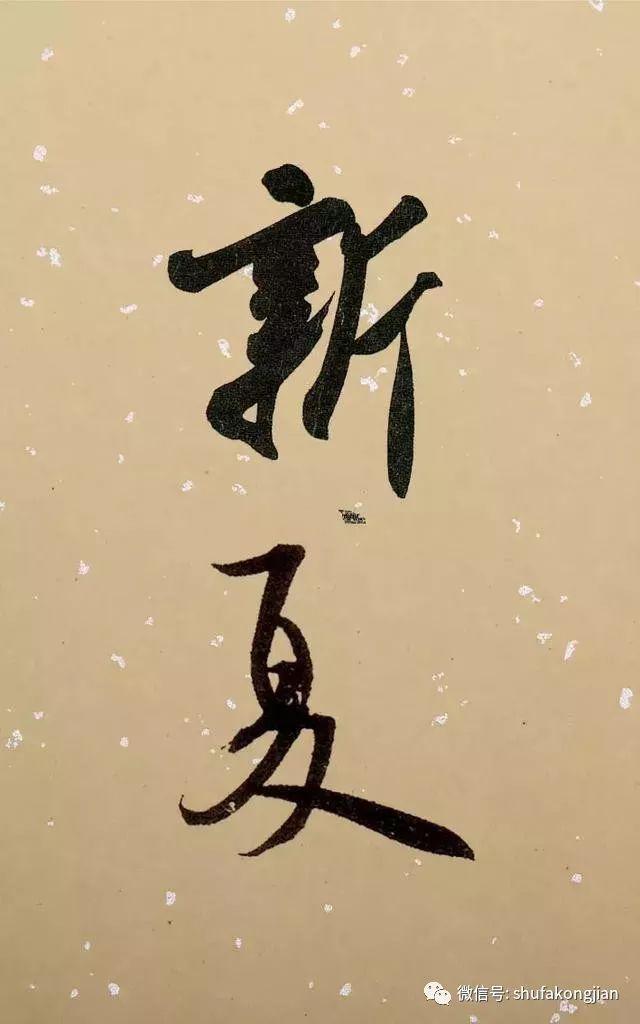 新
夏
微信号: shufakongjian